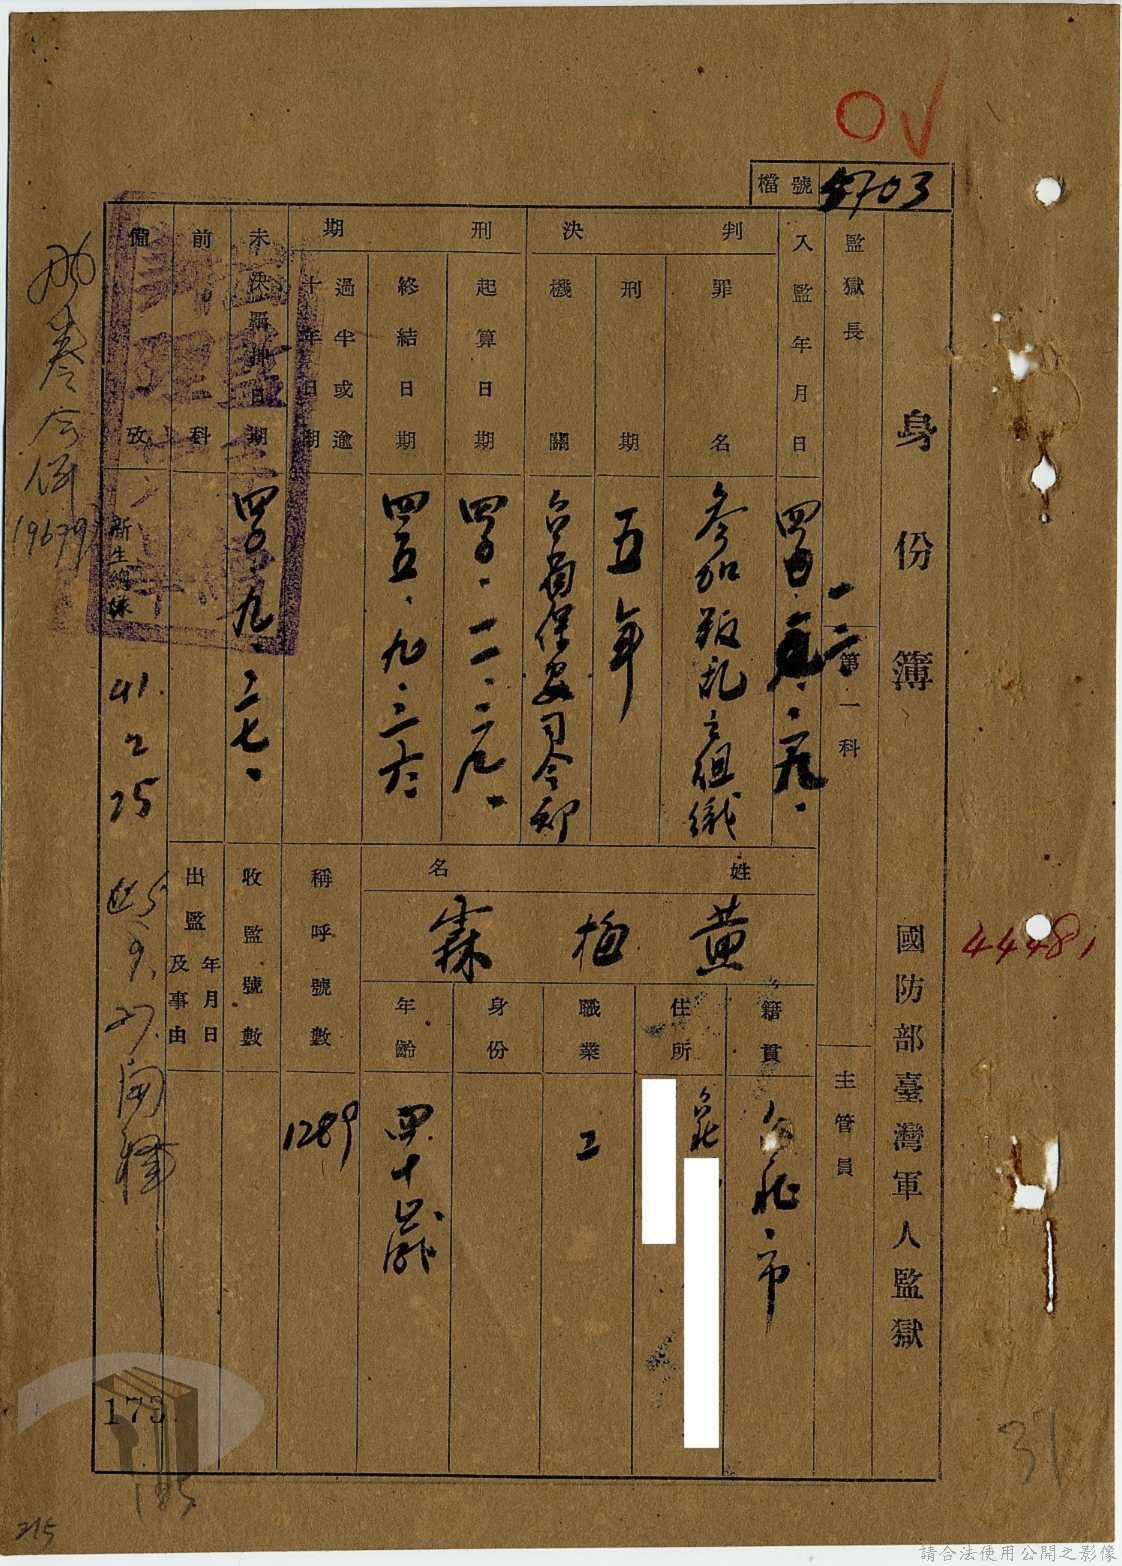 檔號 5703
身份簿 國防部臺灣軍人監獄
44481
監獄長
第一科
主管員
入監年月日 四〇.一二.一九.
判決
罪名 參加叛乱之組織
刑期 五年
機關 台湾保安司令部
刑期
起算日期 四〇.一一.二九.
終結日期 四五.九.二六.
過半或逾十年日期
未決羈押日期 四〇.九.二七.
前科
備攷 新生總隊 41 2 25
45.9.27.開釋
(19679)
姓名 黄梅霖
籍貫 台北市
住所 台北
職業 工
身份
年齡 四十歲
稱呼號數 1289
收監號數
出監年月日及事由
173
31
215
請合法使用公開之影像